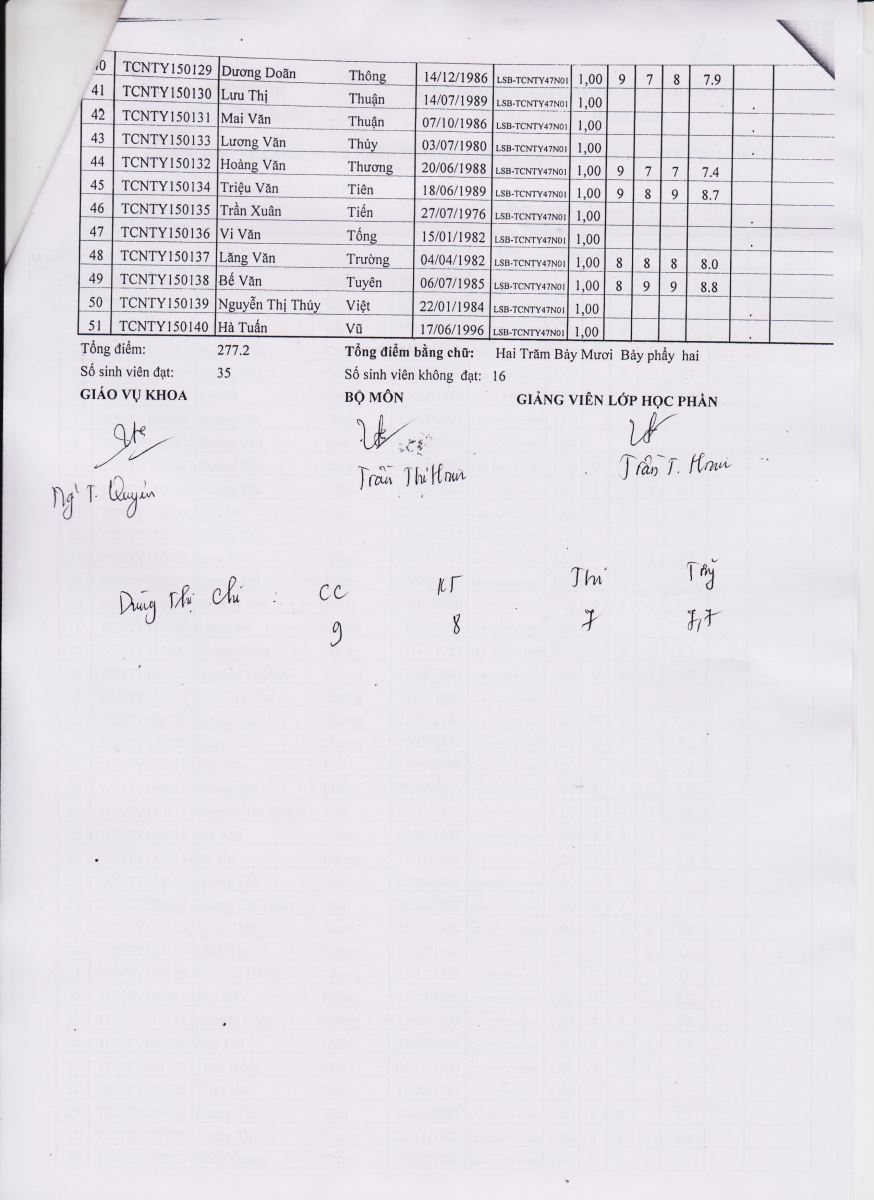 40 TCNTY150129 Dương Doãn Thông 14/12/1986 LSB-TCNTY47N01 1,00 9 7 8 7.9
41 TCNTY150130 Lưu Thị Thuận 14/07/1989 LSB-TCNTY47N01 1,00
42 TCNTY150131 Mai Văn Thuận 07/10/1986 LSB-TCNTY47N01 1,00
43 TCNTY150133 Lương Văn Thủy 03/07/1980 LSB-TCNTY47N01 1,00
44 TCNTY150132 Hoàng Văn Thương 20/06/1988 LSB-TCNTY47N01 1,00 9 7 7 7.4
45 TCNTY150134 Triệu Văn Tiên 18/06/1989 LSB-TCNTY47N01 1,00 9 8 9 8.7
46 TCNTY150135 Trần Xuân Tiến 27/07/1976 LSB-TCNTY47N01 1,00
47 TCNTY150136 Vi Văn Tống 15/01/1982 LSB-TCNTY47N01 1,00
48 TCNTY150137 Lăng Văn Trường 04/04/1982 LSB-TCNTY47N01 1,00 8 8 8 8.0
49 TCNTY150138 Bế Văn Tuyên 06/07/1985 LSB-TCNTY47N01 1,00 8 9 9 8.8
50 TCNTY150139 Nguyễn Thị Thúy Việt 22/01/1984 LSB-TCNTY47N01 1,00
51 TCNTY150140 Hà Tuấn Vũ 17/06/1996 LSB-TCNTY47N01 1,00
Tổng điểm: 277.2 Tổng điểm bằng chữ: Hai Trăm Bảy Mươi Bảy phẩy hai
Số sinh viên đạt: 35 Số sinh viên không đạt: 16
GIÁO VỤ KHOA BỘ MÔN GIẢNG VIÊN LỚP HỌC PHẦN
Trần Thị Trần T.
Ng T. Quyên
Dừng Thị Chi : CC KT Thi
9 8 7 7,7